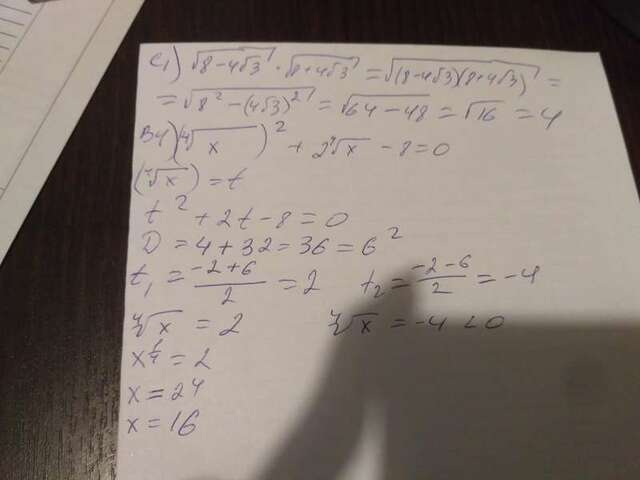 C1) √(8-4√3) · √(8+4√3) = √((8-4√3)(8+4√3)) =
= √(8² - (4√3)²) = √(64-48) = √16 = 4
B4) (⁴√x)² + 2⁴√x - 8 = 0
(⁴√x) = t
t² + 2t - 8 = 0
D = 4 + 32 = 36 = 6²
t₁ = (-2+6)/2 = 2 t₂ = (-2-6)/2 = -4
⁴√x = 2 ⁴√x = -4 < 0
x^(1/4) = 2
x = 2⁴
x = 16